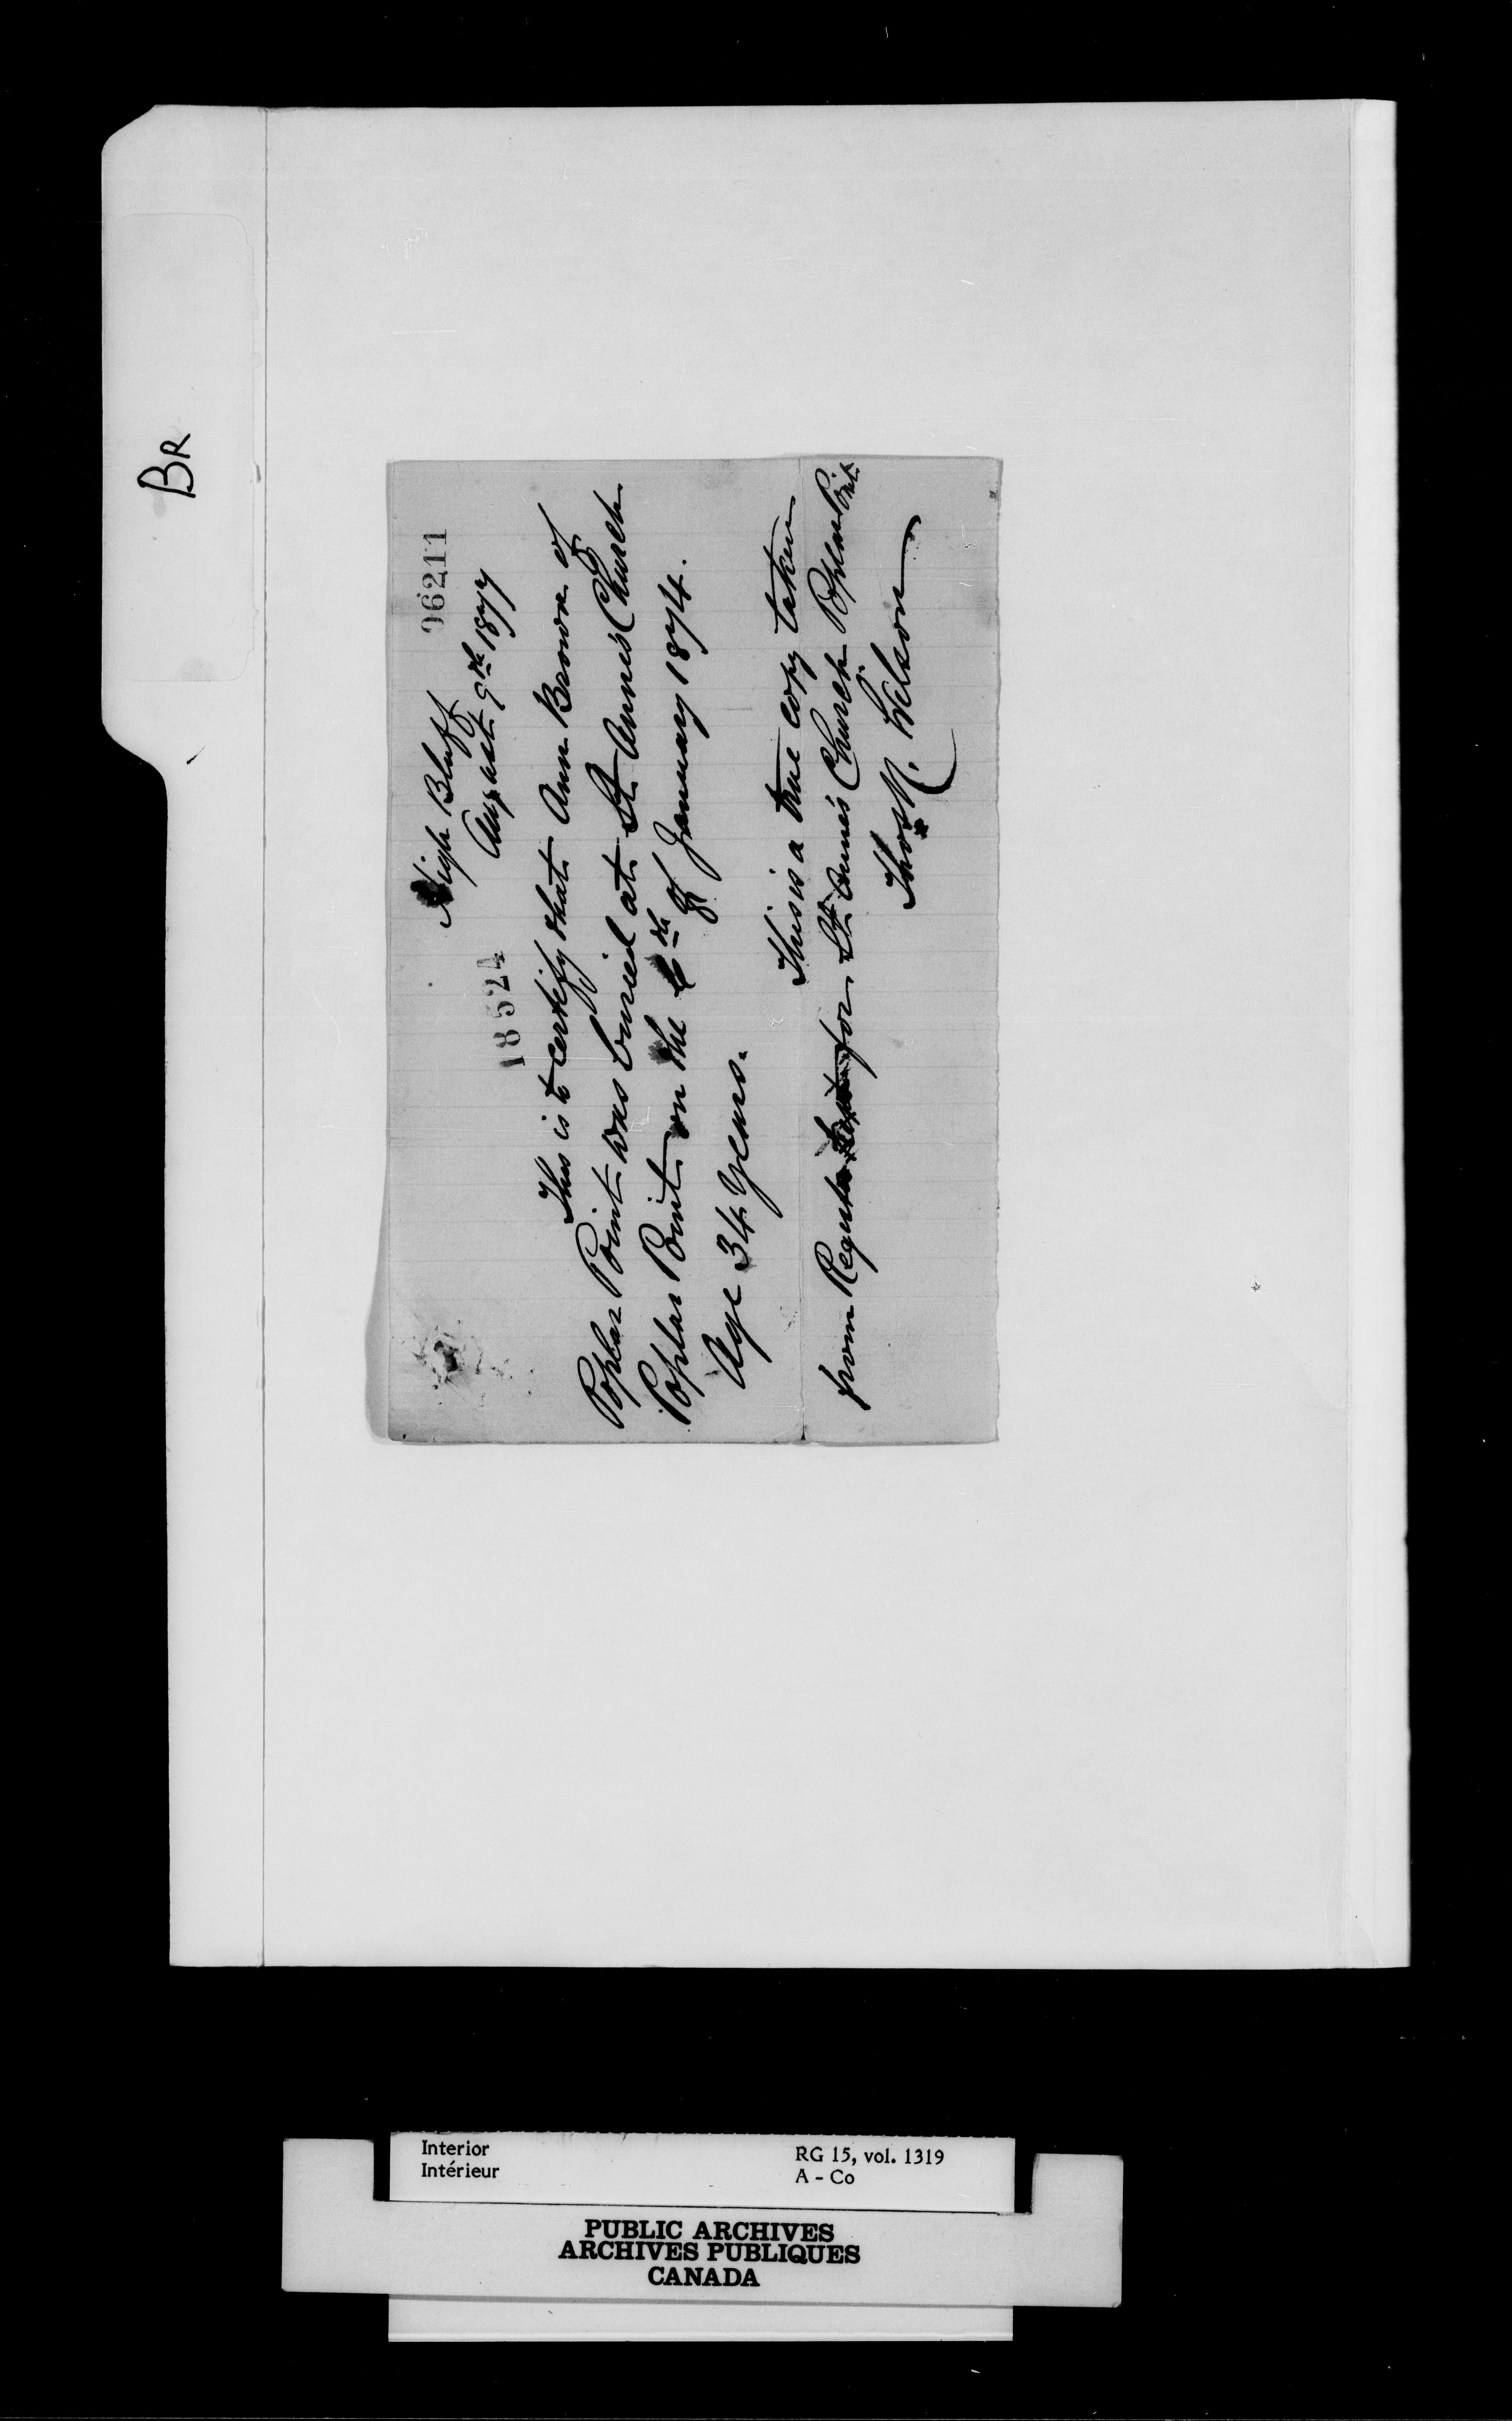 BR
96211
High Bluff
August 9th 1877
18524
This is to certify that Ann Brown of
Poplar Point was buried at St Anne's Church
Poplar Point on the 6th of January 1874.
Age 34 Years.
This is a true copy taken
from Register for St Anne's Church Poplar Point
Thos N. Wilson
Interior
Intérieur
RG 15, vol. 1319
A - Co
PUBLIC ARCHIVES
ARCHIVES PUBLIQUES
CANADA